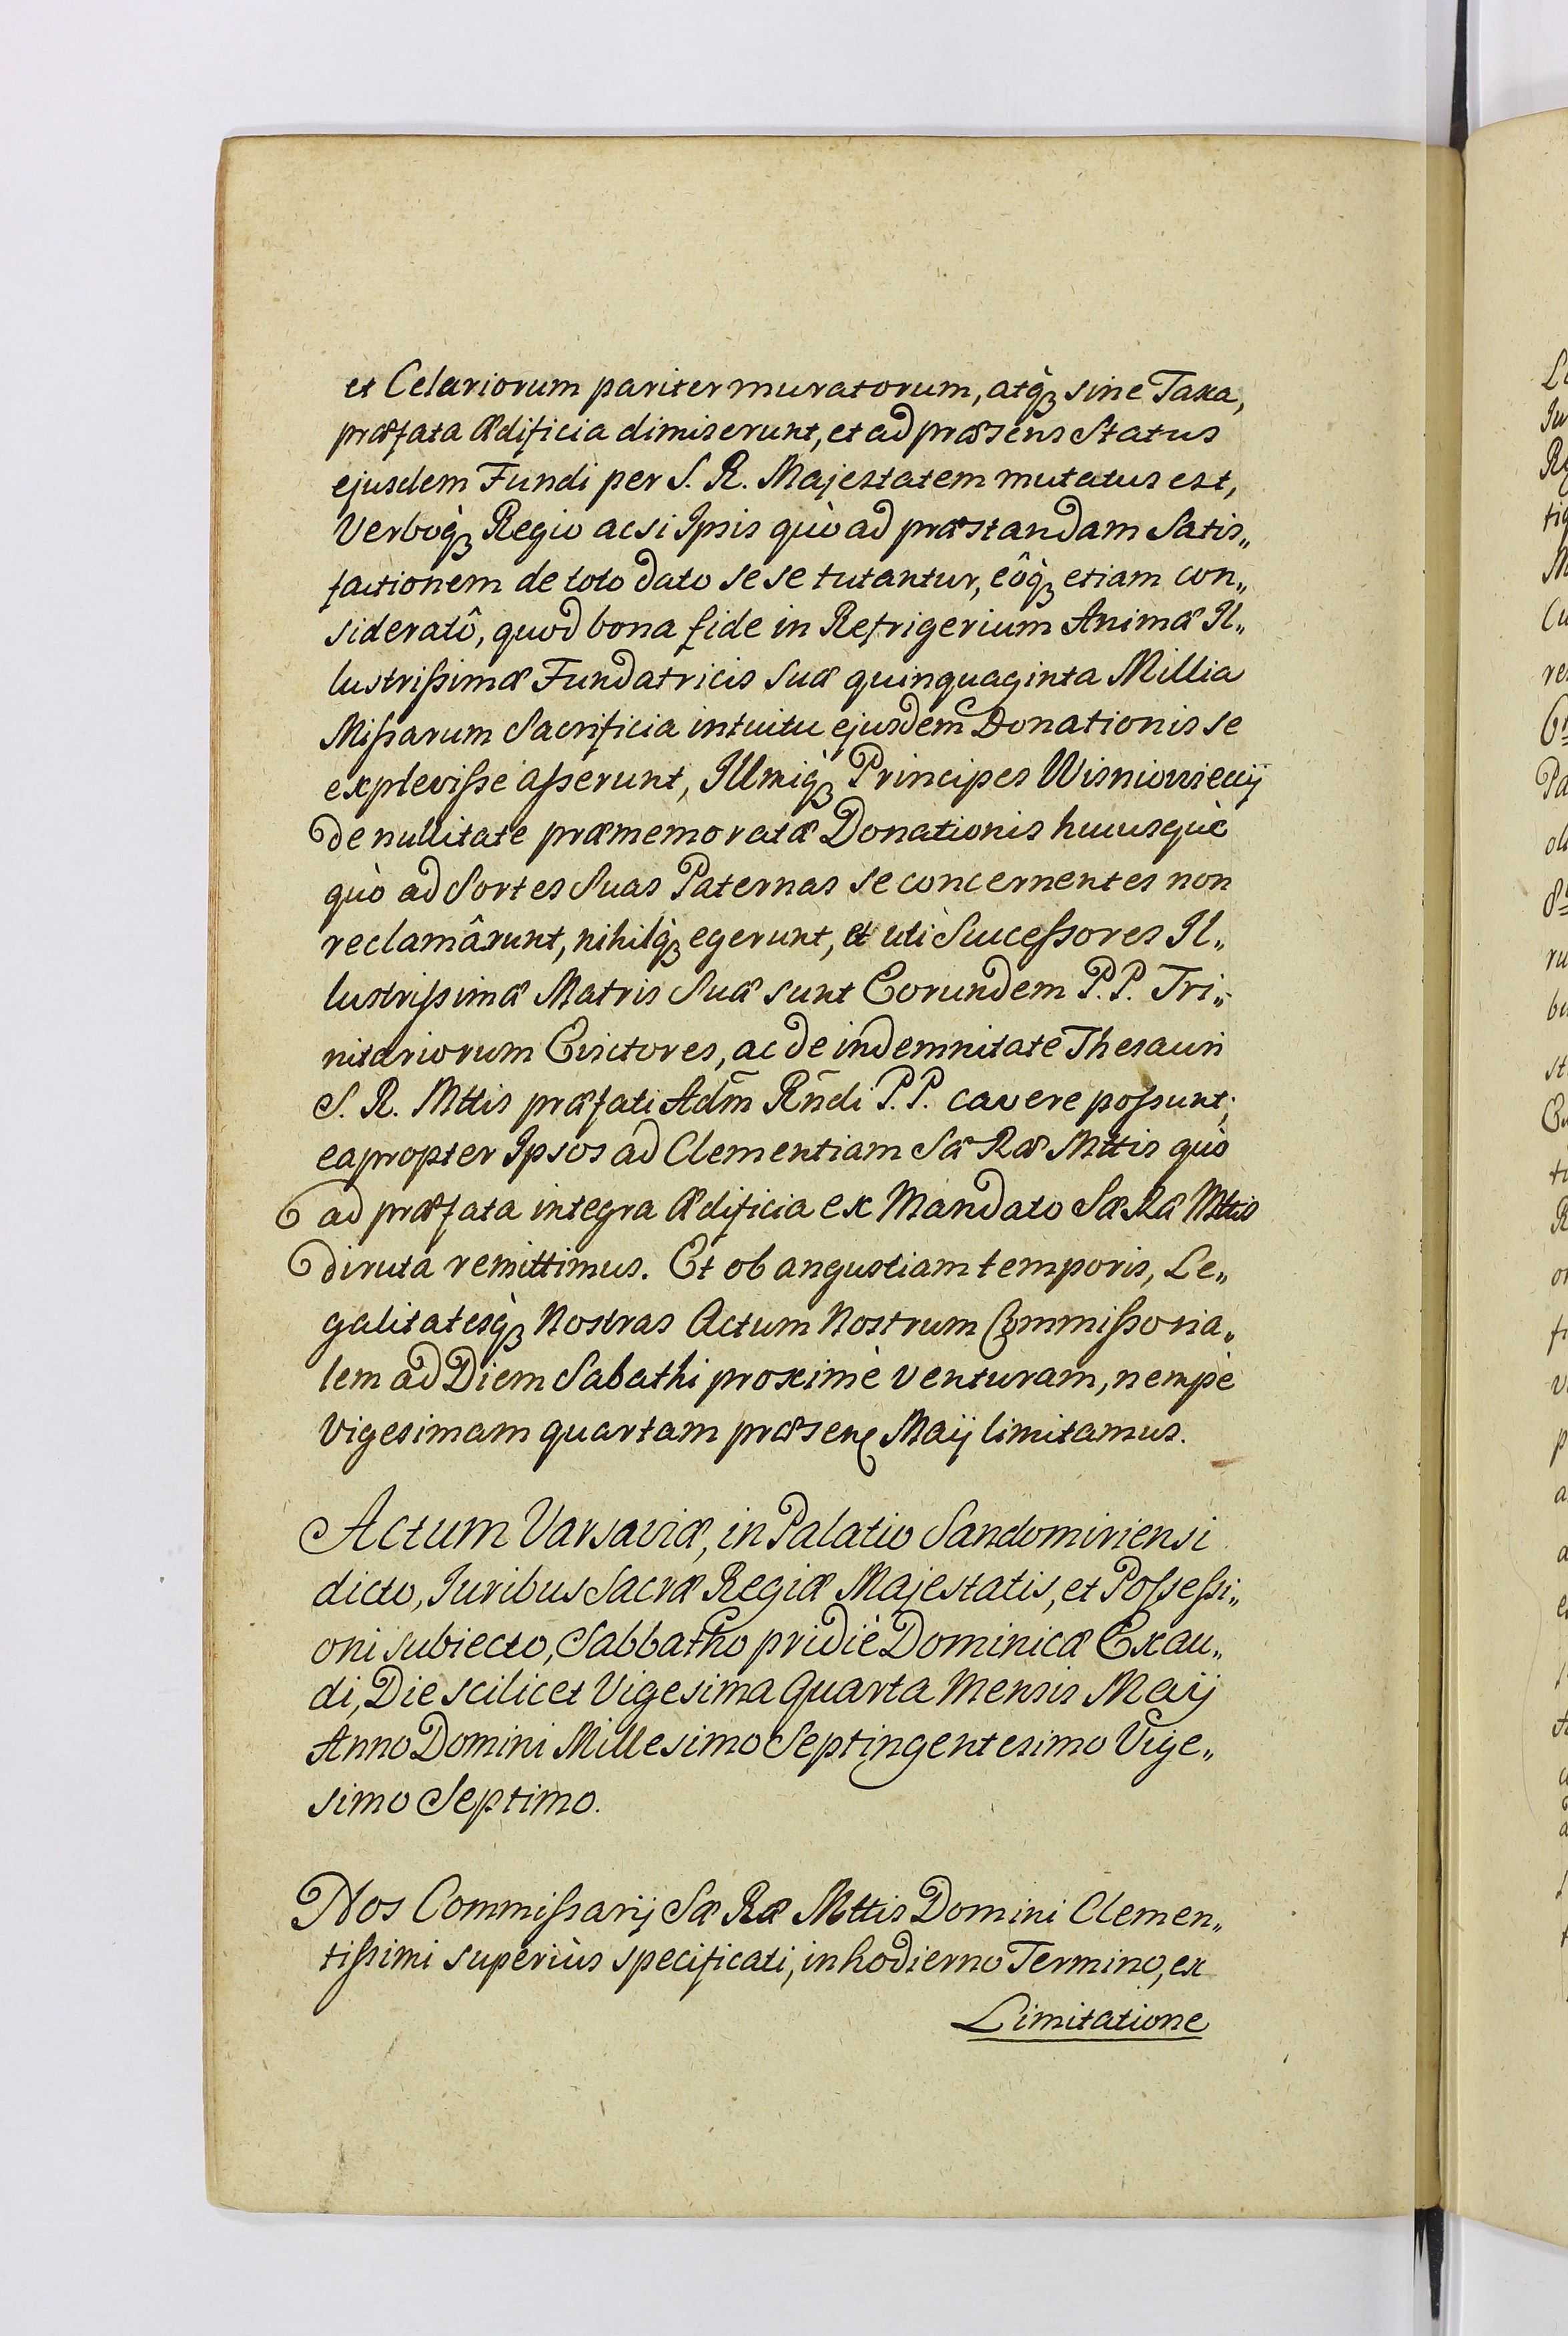 et Celariorum pariter muratorum, atq̀ꝫ sine Taxa,
præfata Ædificia dimiserunt, et ad præsens Status
ejusdem Fundi per S. R. Majestatem mutatus est,
Verboq̀ꝫ Regio acsi Ipsis quò ad præstandam Satis„
factionem de toto dato sese tutantur, eôq̀ꝫ etiam con„
sideratô, quod bona fide in Refrigerium Animæ Il„
lustrißimæ Fundatricis Suæ quinquaginta Millia
Mißarum Sacrificia intuitu ejusdem Donationis se
explevißse aßerunt, Illmiq̀ꝫ Principes Wisniowiecij
de nullitate præmemoratæ Donationis hucusquè
quò ad Sortes Suas Paternas se concernentes non
reclamârunt, nihilq̀ꝫ egerunt, et uti Succeßores Il„
lustrißimæ Matris Suæ sunt Eorundem P.P. Tri„
nitariorum Evictores, ac de indemnitate Thesauri
S. R. Mttis præfati Adm̄ Rn̄di P.P. cavere poßunt;
eapropter Ipsos ad Clementiam Sæ Ræ Mttis quò
ad præfata integra Ædificia ex Mandato Sæ Ræ Mttis
diruta remittimus. Et ob angustiam temporis, Le„
galitatesq̀ꝫ Nostras Actum Nostrum Commißoria„
lem ad Diem Sabathi proximè venturam, nempè
Vigesimam quartam præsenꝭ Maij limitamus.
Actum Varsaviæ, in Palatio Sandomiriensi
dicto, Juribus Sacræ Regiæ Majestatis, et Poßeßi„
oni subiecto, Sabbatho pridiè Dominicæ Exau„
di, Die scilicet Vigesima Quarta Mensis Maij
Anno Domini Millesimo Septingentesimo Vige„
simo Septimo.
Nos Commißarij Sæ Ræ Mttis Domini Clemen„
tißimi superiùs specificati, in hodierno Termino, ex
Limitatione